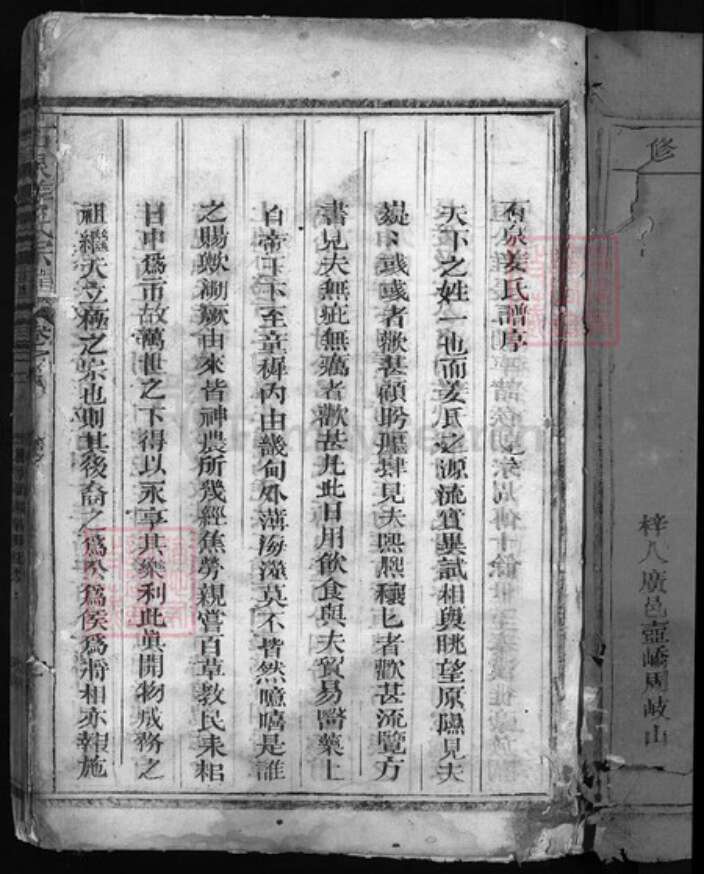 修
梓人廣邑壺嶠周岐山
石泉姜氏譜序
天下之姓一也而姜氏之源流實異試相與眺望原隰見夫
薿〻彧彧者歡甚顧盻廛肆見夫熙熙穰〻者歡甚流覽方
書見夫無疵無癘者歡甚凡此日用飲食與夫貿易醫藥上
自帝王下至童穉內由畿甸外薄海濵莫不皆然噫嘻是誰
之賜歟溯厥由來皆神農所幾經焦勞親嘗百草教民耒耜
日中爲市故萬世之下得以永享其樂利此眞開物成務之
祖繼天立極之宗也則其後裔之爲公爲侯爲將相亦報施
石泉姜氏宗譜 卷之